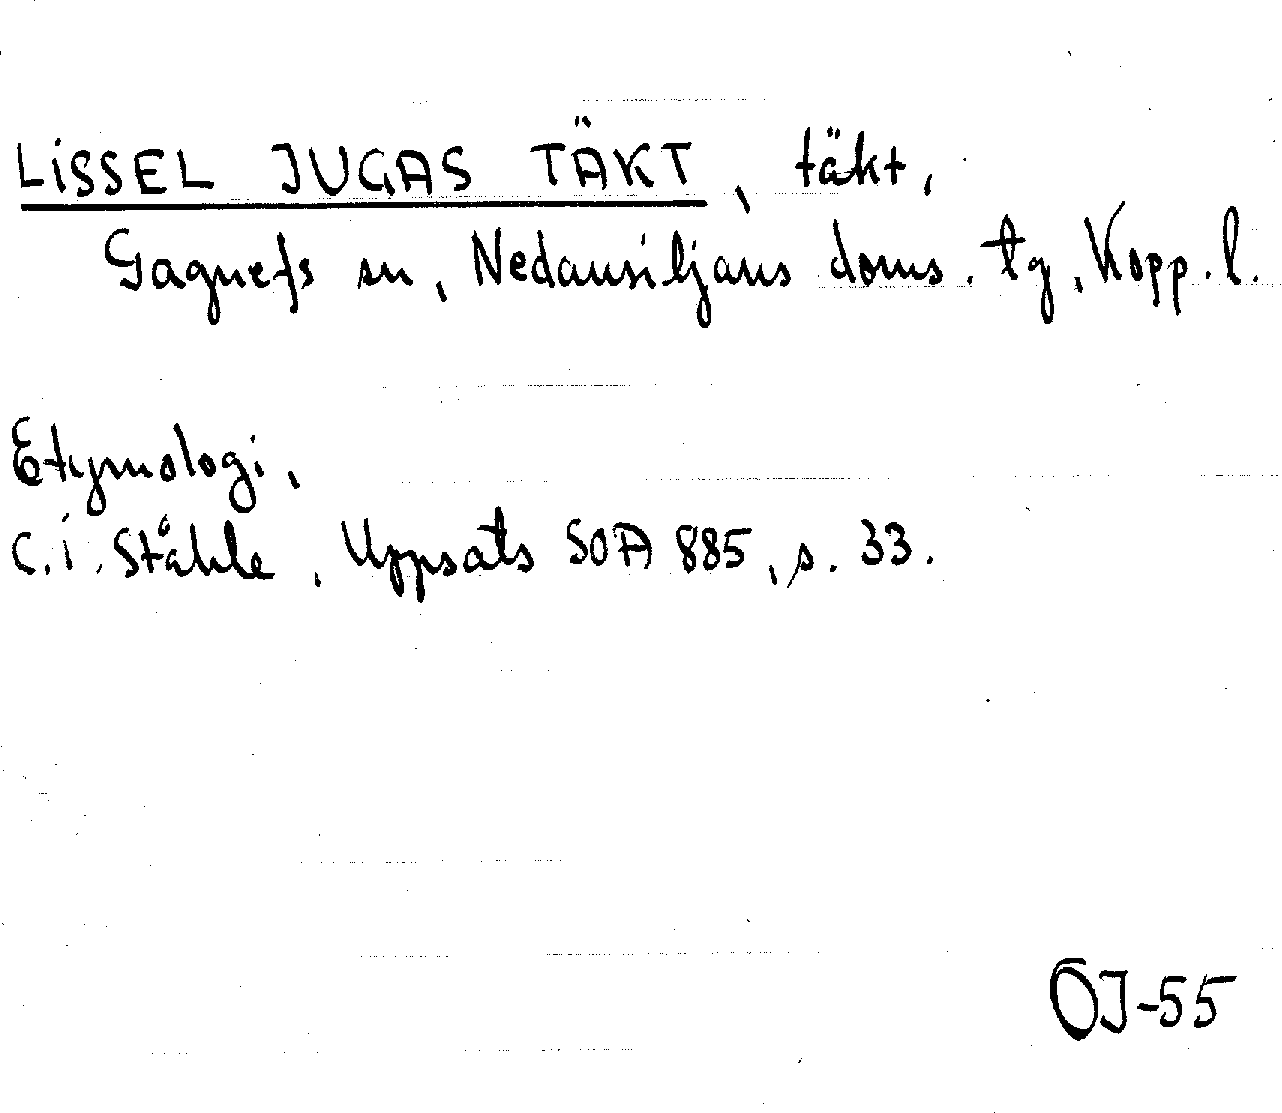 LISSEL JUGAS TÄKT, täkt,
Gagnefs sn, Nedansiljans doms. tg, Kopp. l.
Etymologi,
C.I. Ståhle, Uppsats SOA 885, s. 33.
ÖJ-55